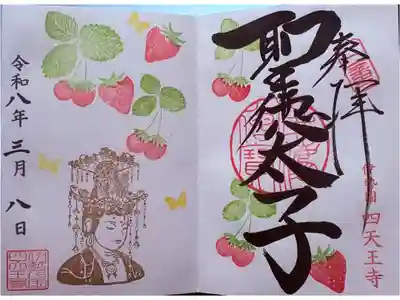 奉拝
聖徳太子
伊勢国 四天王寺
令和八年 三月 八日